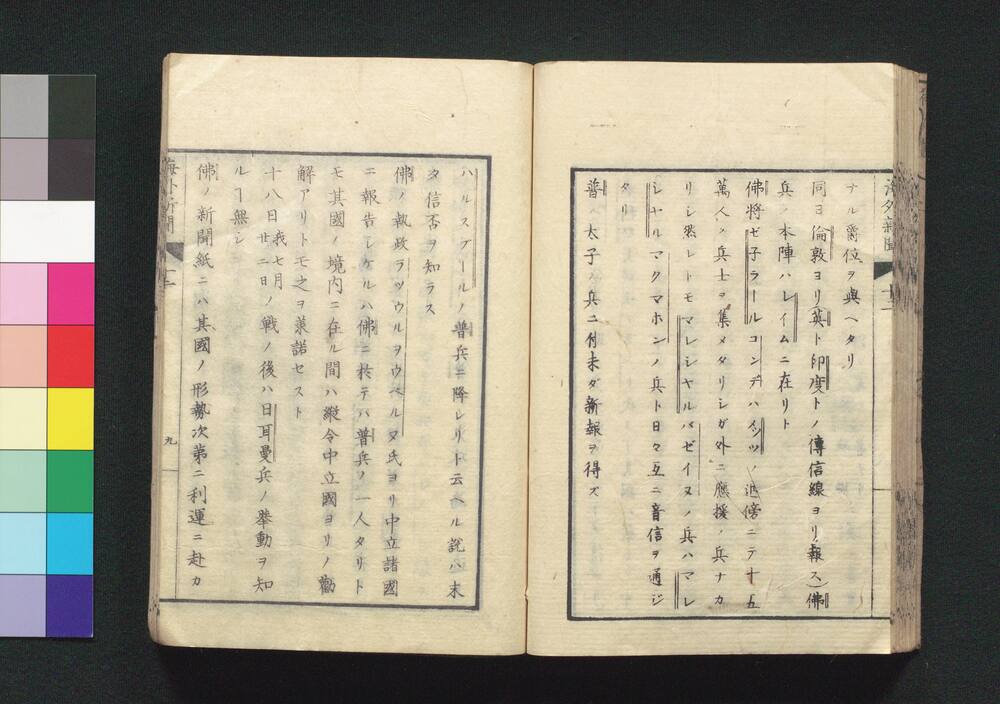 海外新聞 十二
ナル爵位ヲ與ヘタリ
同ヨ倫敦ヨリ(英ト印度トノ傳信線ヨリ報ス)佛
兵ノ本陣ハレイムニ在リト
佛將ゼ子ラールコンデハメッツノ近傍ニテ十五
萬人ノ兵士ヲ集メタリシガ外ニ應援ノ兵ナカ
リシ然レトモマレシヤルバゼイヌノ兵ハマレ
シヤルマクマホンノ兵ト日々互ニ音信ヲ通ジ
タリ
普ノ太子ノ兵ニ付未ダ新報ヲ得ズ
ハルスブールノ普兵ニ降レリト云ヘル説ハ未
タ信否ヲ知ラス
佛ノ執政ラツウルヲウベルヌ氏ヨリ中立諸國
ニ報告シケルハ佛ニ於テハ普兵ノ一人タリト
モ其國ノ境内ニ在ル間ハ縦令中立國ヨリノ勸
解アリトモ之ヲ兼諾セスト
十八日我七月廿二日ノ戰ノ後ハ日耳曼兵ノ擧動ヲ知
ルヿ無シ
佛ノ新聞紙ニハ其國ノ形勢次第ニ利運ニ赴カ
海外新聞
九